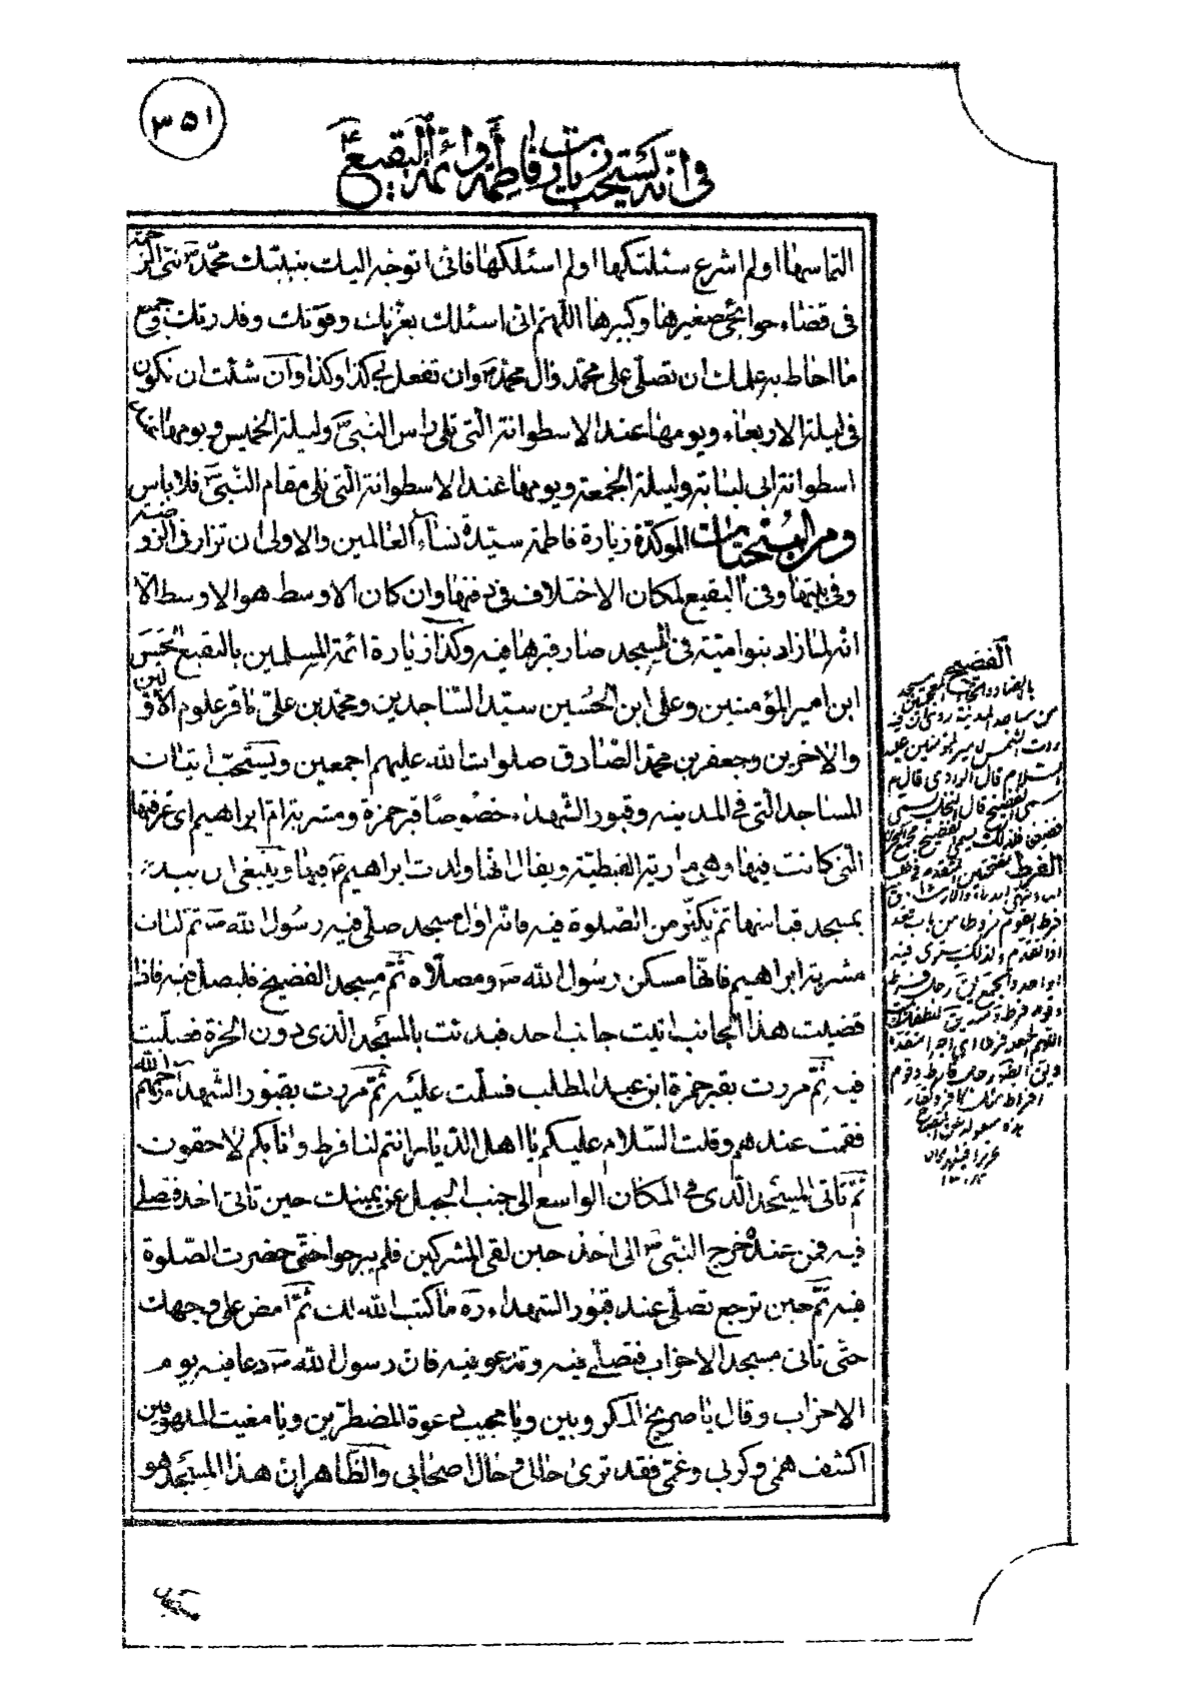 ٣٥١
فى انّه يستحب زيارت فاطمة وائمة البقيع ع
التماسها اولم اشرع سئلتكها اولم اسئلكها فانى اتوجه اليك بنبيك محمد ص نبى الرحمة
فى قضاء حوائجى صغيرها وكبيرها اللهم انى اسئلك بعزتك وقوتك وقدرتك وجميع
ما احاط به علمك ان تصلى على محمد وال محمد ص وان تفعل بى كذا وكذا وان شئت ان تكون
فى ليلة الاربعاء ويومها عند الاسطوانة التى تلى راس النبى ص وليلة الخميس ويومها عند
اسطوانة ابى لبابة وليلة الجمعة ويومها عند الاسطوانة التى تلى مقام النبى ص فلا باس
ومن المستحبات الموكدة زيارة فاطمة سيدة نساء العالمين والاولى ان تزار فى الروضة
وفى بيتها وفى البقيع لمكان الاختلاف فى دفنها وان كان الاوسط هو الاوسط الا
انه لما زاد بنوامية فى المسجد صار قبرها فيه وكذا زيارة ائمة المسلمين بالبقيع الحسن
ابن امير المؤمنين وعلى ابن الحسين سيد الساجدين ومحمد بن على باقر علوم الاولين
والاخرين وجعفر بن محمد الصادق صلوات الله عليهم اجمعين ويستحب اتيان
المساجد التى فى المدينه وقبور الشهداء خصوصا قبر حمزة ومشربة ام ابراهيم اى غرفتها
التى كانت فيها وهى مارية القبطية ويقال انها ولدت ابراهيم ع فيها وينبغى ان يبدء
بمسجد قبا منها ثم يكثر من الصلوة فيه فانه اول مسجد صلى فيه رسول الله ص ثم لتات
مشربة ابراهيم فانها مسكن رسول الله ص ومصلاه ثم مسجد الفضيخ فليصل فيه فاذا
قضيت هذا الجانب اتيت جانب احد فبدئت بالمسجد الذى دون الحرة فصليت
فيه ثم مررت بقبر حمزة ابن عبد المطلب فسلمت عليه ثم مررت بقبور الشهداء رحمهم الله
فقمت عندهم وقلت السلام عليكم يا اهل الديار انتم لنا فرط وانا بكم لاحقون
ثم تاتى المسجد الذى فى المكان الواسع الى جنب الجبل عن يمينك حين تاتى احد فتصلى
فيه فمن عنده خرج النبى ص الى احد حين لقى المشركين فلم يبرحوا حتى حضرت الصلوة
فيه ثم حين ترجع تصلى عند قبور الشهداء ره ما كتب الله لك ثم امض على وجهك
حتى تاتى مسجد الاحزاب فتصلى فيه وتدعو فيه فان رسول الله ص دعا فيه يوم
الاحزاب وقال يا صريخ المكروبين ويا مجيب دعوة المضطرين ويا مغيث الملهوفين
اكشف همى وكربى وغمى فقد ترى حالى وحال اصحابى والظاهر ان هذا المسجد هو
الفضيخ
من مساجد المدينة روى ان فيه
ردت الشمس لامير المؤمنين عليه
السلام قال الراوى قال لم
سمى الفضيخ قال لنخل يسمى
فضيخ فلذلك يسمى الفضيخ مجمع البحرين
الفرط بفتحتين المتقدم فى طلب